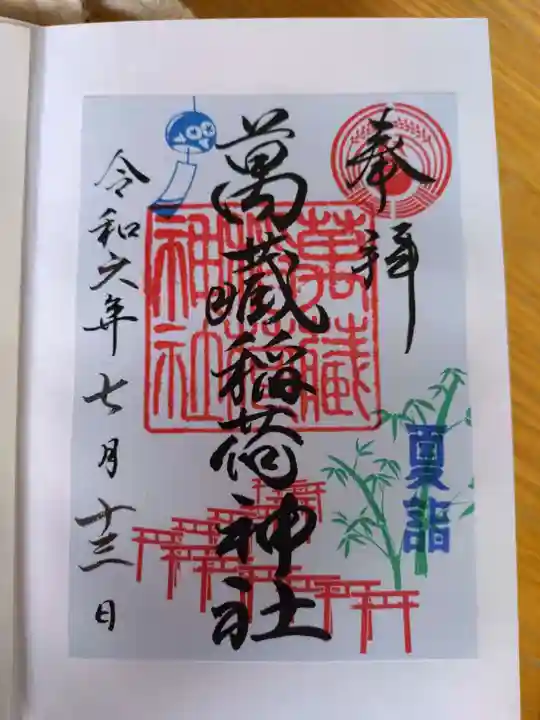 奉拝
夏詣
萬藏稲荷神社
萬藏
稲荷
神社
令和六年七月十三日